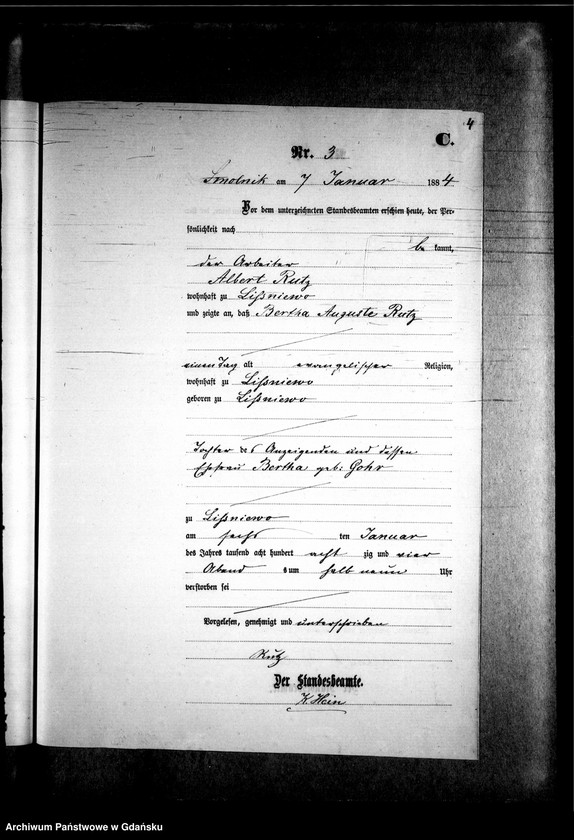 4
C.
Nr. 3
Smolnik am 7 Januar 1884
Vor dem unterzeichneten Standesbeamten erschien heute, der Per-
sönlichkeit nach
be kannt,
der Arbeiter
Albert Rutz
wohnhaft zu Lißniewo
und zeigte an, daß Bertha Auguste Rutz
einen Tag alt evangelischer Religion,
wohnhaft zu Lißniewo
geboren zu Lißniewo
Tochter des Anzeigenden und dessen
Ehefrau Bertha geb: Gohr
zu Lißniewo
am sechs ten Januar
des Jahres tausend acht hundert acht zig und vier
Abend s um halb neun Uhr
verstorben sei
Vorgelesen, genehmigt und unterschrieben
Rutz
Der Standesbeamte.
K. Hein
Archiwum Państwowe w Gdańsku